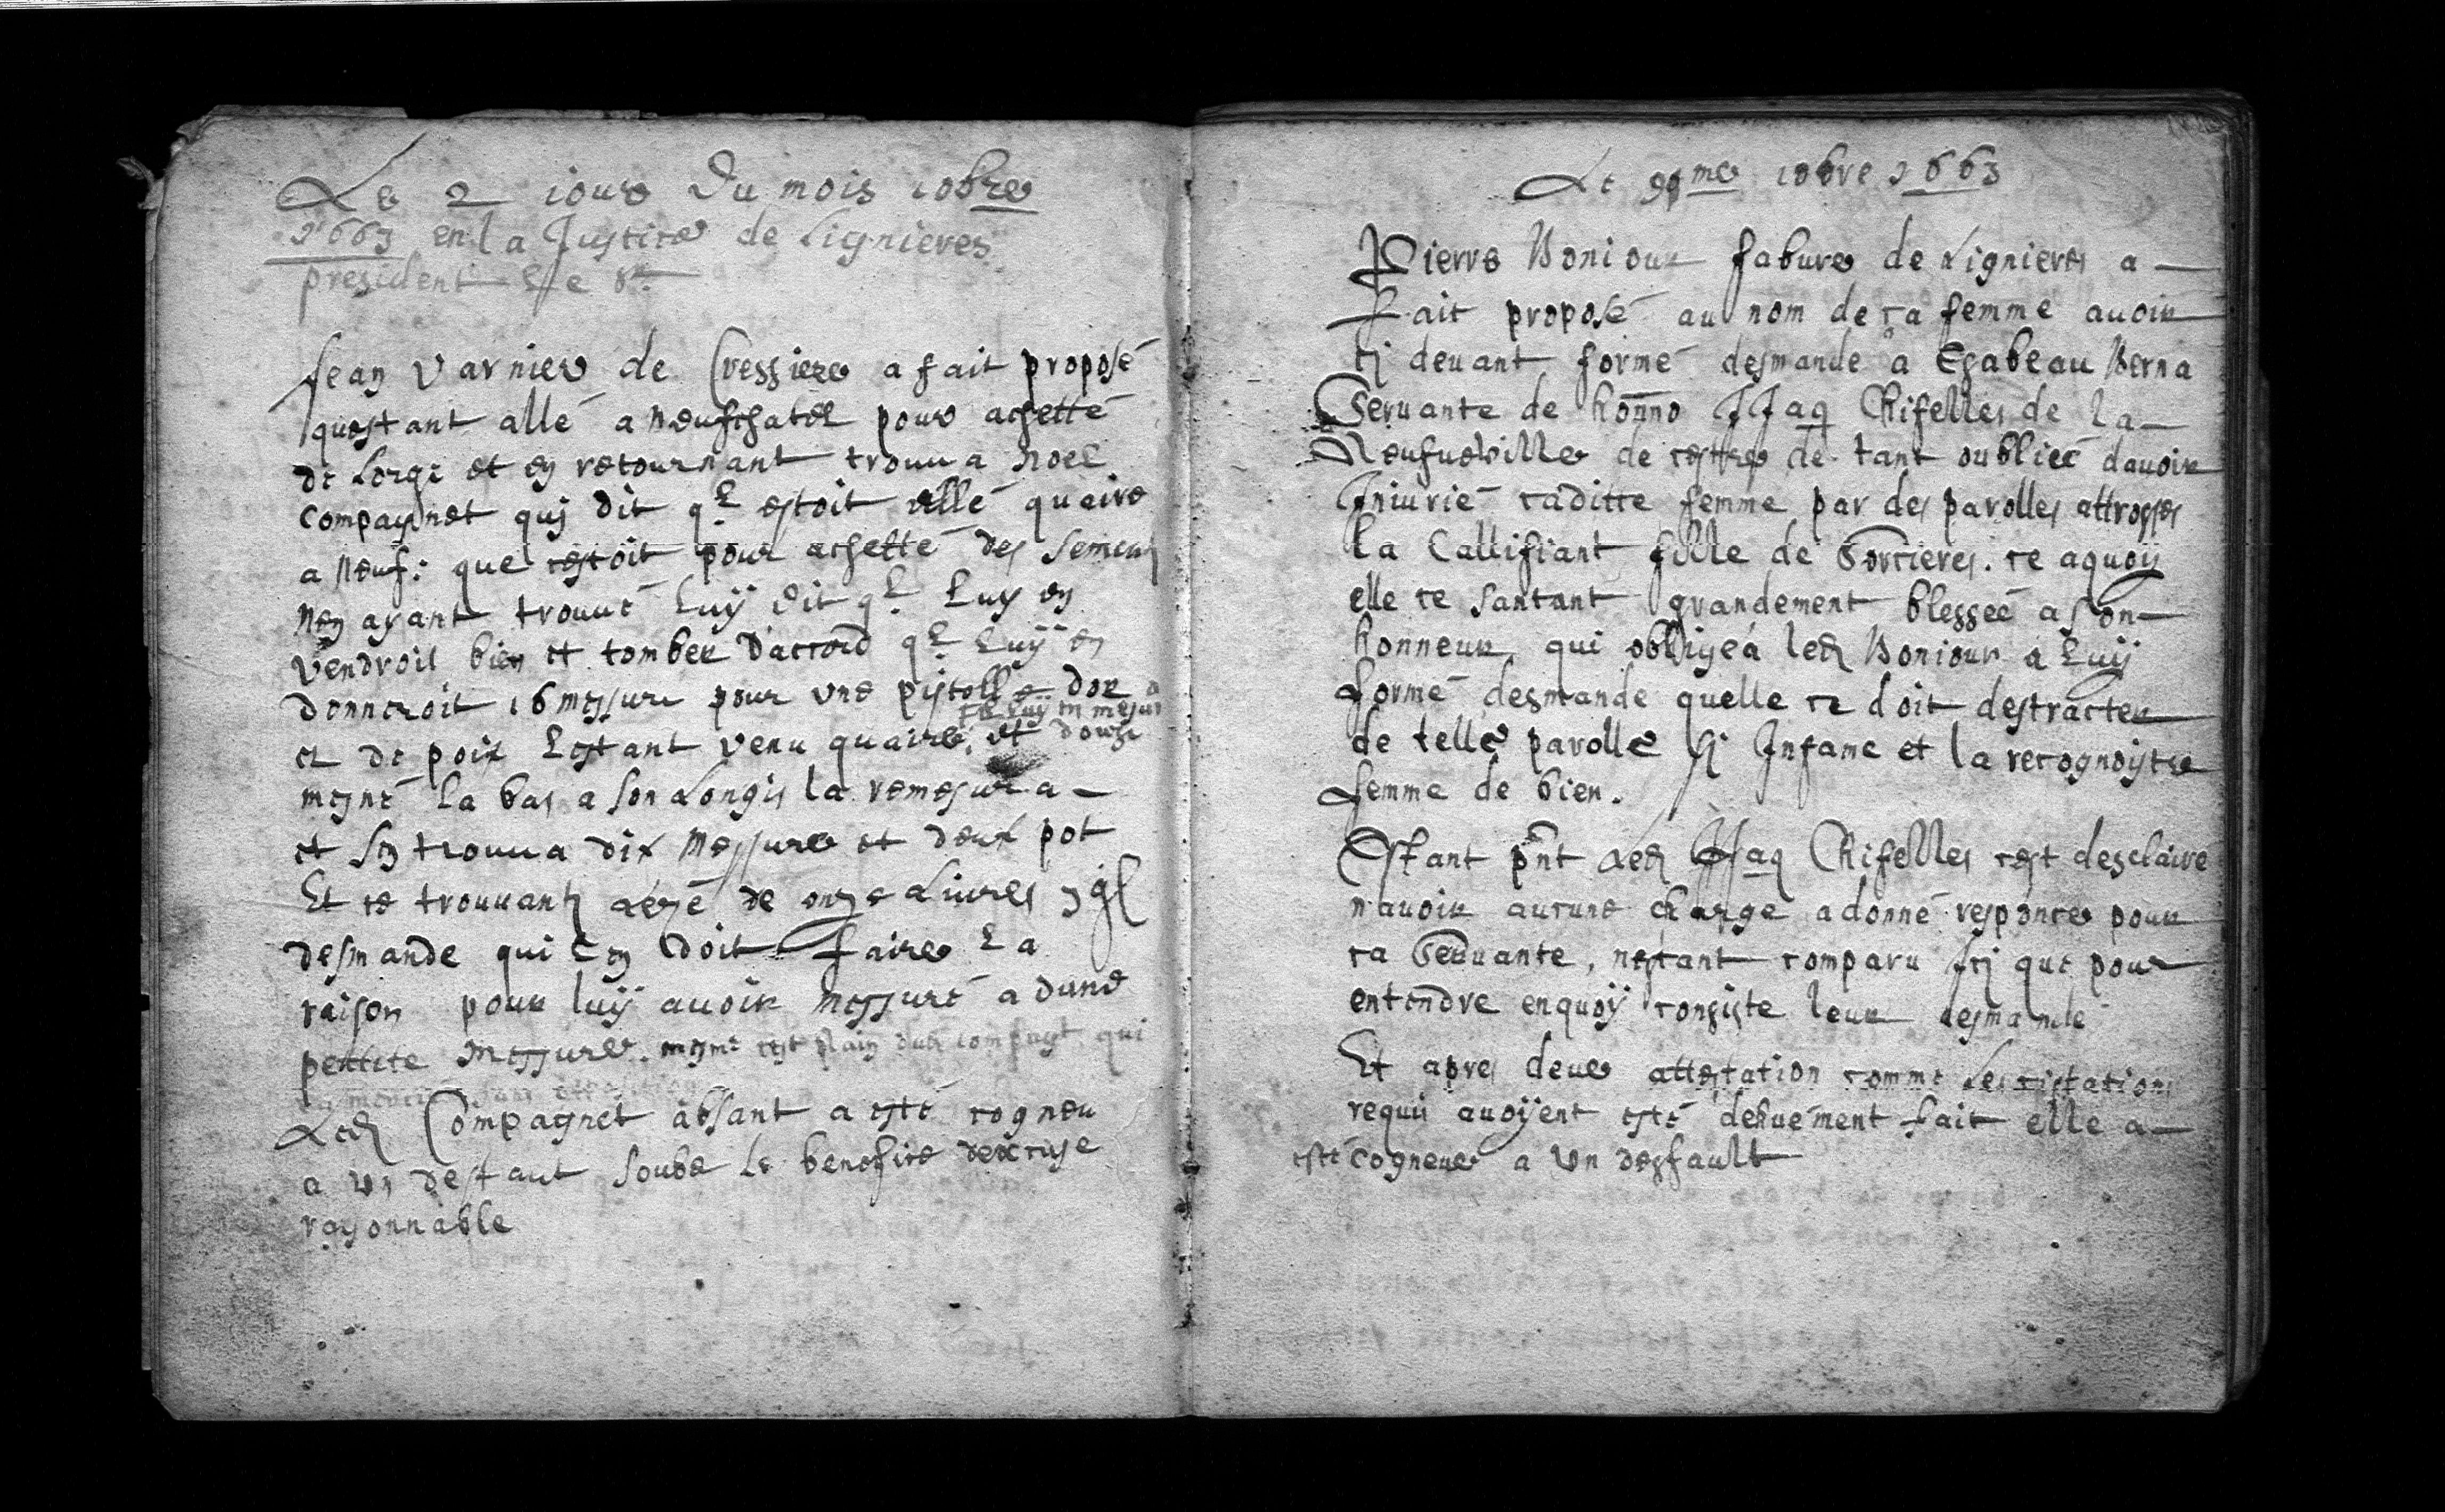 Le 2 iour du mois 10bre
1663 en la Justice de Lignieres
president
Jean Varnier de Cressiere a fait proposé
questant allé a neufchatel pour achetté
de Lorge et en retournant trouua noel
Compagnet quj dit ql estoit allé quaire
a neuf: que cestoit pour achetté des semens
Nen ayant trouué Luÿ dit ql Luy en
Vendroit bien et tomber daccord ql Luÿ en
donneroit 16 messure pour vne pistolle dor
et de poix Lestant venu quaire, et Luÿ en mesur
douze
mesne La bas a son Longis la remesura
et sen trouua dix messure et deux pot
Et ce trouuant Lezé de onze Liures
desmande qui Len doit faire La
raison pour luÿ auoir messuré a dune
pettite messure. mesme cest plain dud compagt qui
Led Compagnet absant a esté cogneu
a vn desfaut soube Le benefice dexcuse
raysonnable
Le 11me 10bre 1663
Pierre Boniour fabure de Lignieres a
fait proposé au nom de ca femme auoir
cj deuant formé desmande a Esabeau Berna
Seruante de honno JJaq Chifelles de la
Neufueville de cestre de tant oubliee dauoir
Iniurié caditte femme par des parolles attrosses
la Callifiant fille de Sorcieres. ce aquoÿ
elle ce santant grandement blessée a son
honneur, qui obligea led Boniour a Luÿ
formé desmande quelle ce doit destracter
de telle parolle si Infame et la recognoystre
femme de bien.
Estant pnt Led JJaq Chifelles cest desclaire
nauoir aucune charge a donné responce pour
ca Seruante, nestant comparu icj que pour
entendre enquoÿ consiste leur desmande
Et apres deue attestation comme Les cistations
requis auoÿent esté dehuement fait elle a
esté cogneue a vn desfault